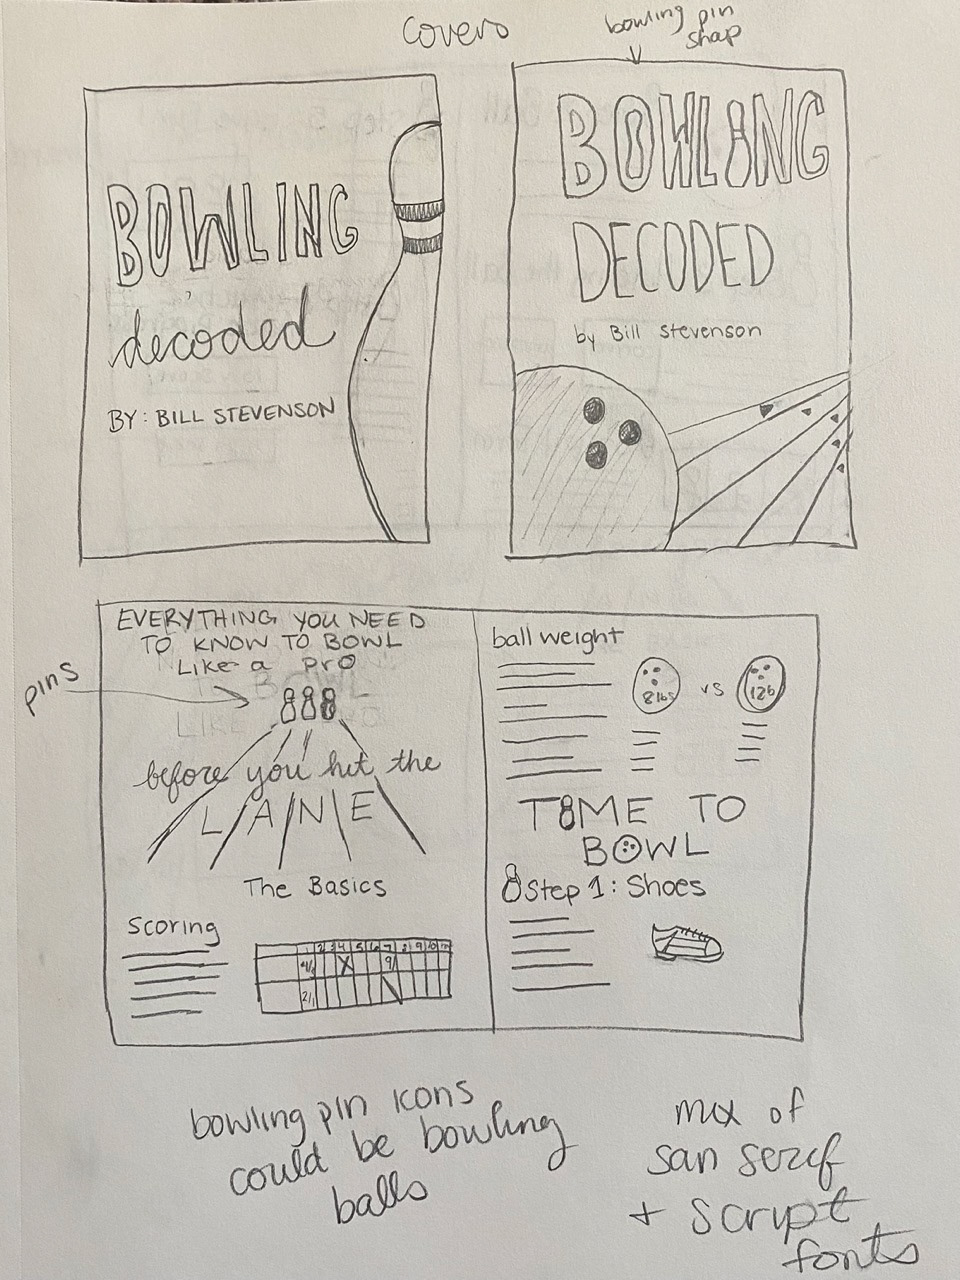 Covers
bowling pin
shap
BOWLING
decoded
BY: BILL STEVENSON
BOWLING
DECODED
by Bill Stevenson
EVERYTHING YOU NEED
TO KNOW TO BOWL
Like a pro
pins
before you hit the
LANE
The Basics
Scoring
1 2 3 4 5 6 7 8 9 10
X 9/
2/1
ball weight
8 lbs vs 12 lb
TIME TO
BOWL
Step 1: Shoes
bowling pin icons
could be bowling
balls
mix of
san serif
+ script
fonts